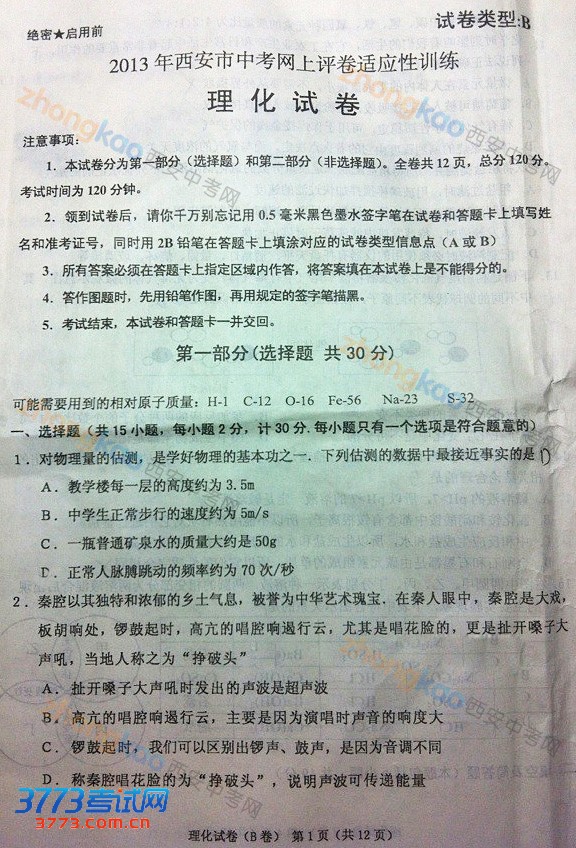 绝密★启用前
试卷类型:B
2013年西安市中考网上评卷适应性训练
理化试卷
注意事项:
1．本试卷分为第一部分（选择题）和第二部分（非选择题）。全卷共12页，总分120分。
考试时间为120分钟。
2．领到试卷后，请你千万别忘记用0.5毫米黑色墨水签字笔在试卷和答题卡上填写姓
名和准考证号，同时用2B铅笔在答题卡上填涂对应的试卷类型信息点（A或B）
3．所有答案必须在答题卡上指定区域内作答，将答案填在本试卷上是不能得分的。
4．答作图题时，先用铅笔作图，再用规定的签字笔描黑。
5．考试结束，本试卷和答题卡一并交回。
第一部分(选择题 共30分)
可能需要用到的相对原子质量：H-1 C-12 O-16 Fe-56 Na-23 S-32
一、选择题（共15小题，每小题2分，计30分.每小题只有一个选项是符合题意的）
1．对物理量的估测，是学好物理的基本功之一．下列估测的数据中最接近事实的是( )
A．教学楼每一层的高度约为3.5m
B．中学生正常步行的速度约为5m/s
C．一瓶普通矿泉水的质量大约是50g
D．正常人脉膊跳动的频率约为70次/秒
2．秦腔以其独特和浓郁的乡土气息，被誉为中华艺术瑰宝．在秦人眼中，秦腔是大戏，
板胡响处，锣鼓起时，高亢的唱腔响遏行云，尤其是唱花脸的，更是扯开嗓子大
声吼，当地人称之为“挣破头”
A．扯开嗓子大声吼时发出的声波是超声波
B．高亢的唱腔响遏行云，主要是因为演唱时声音的响度大
C．锣鼓起时，我们可以区别出锣声、鼓声，是因为音调不同
D．称秦腔唱花脸的为“挣破头”，说明声波可传递能量
理化试卷（B卷）第1页（共12页）
3773考试网
www.3773.com.cn
zhongkao西安中考网
zhongkao西安中考网
zhongkao西安中考网
zhongkao西安中考网